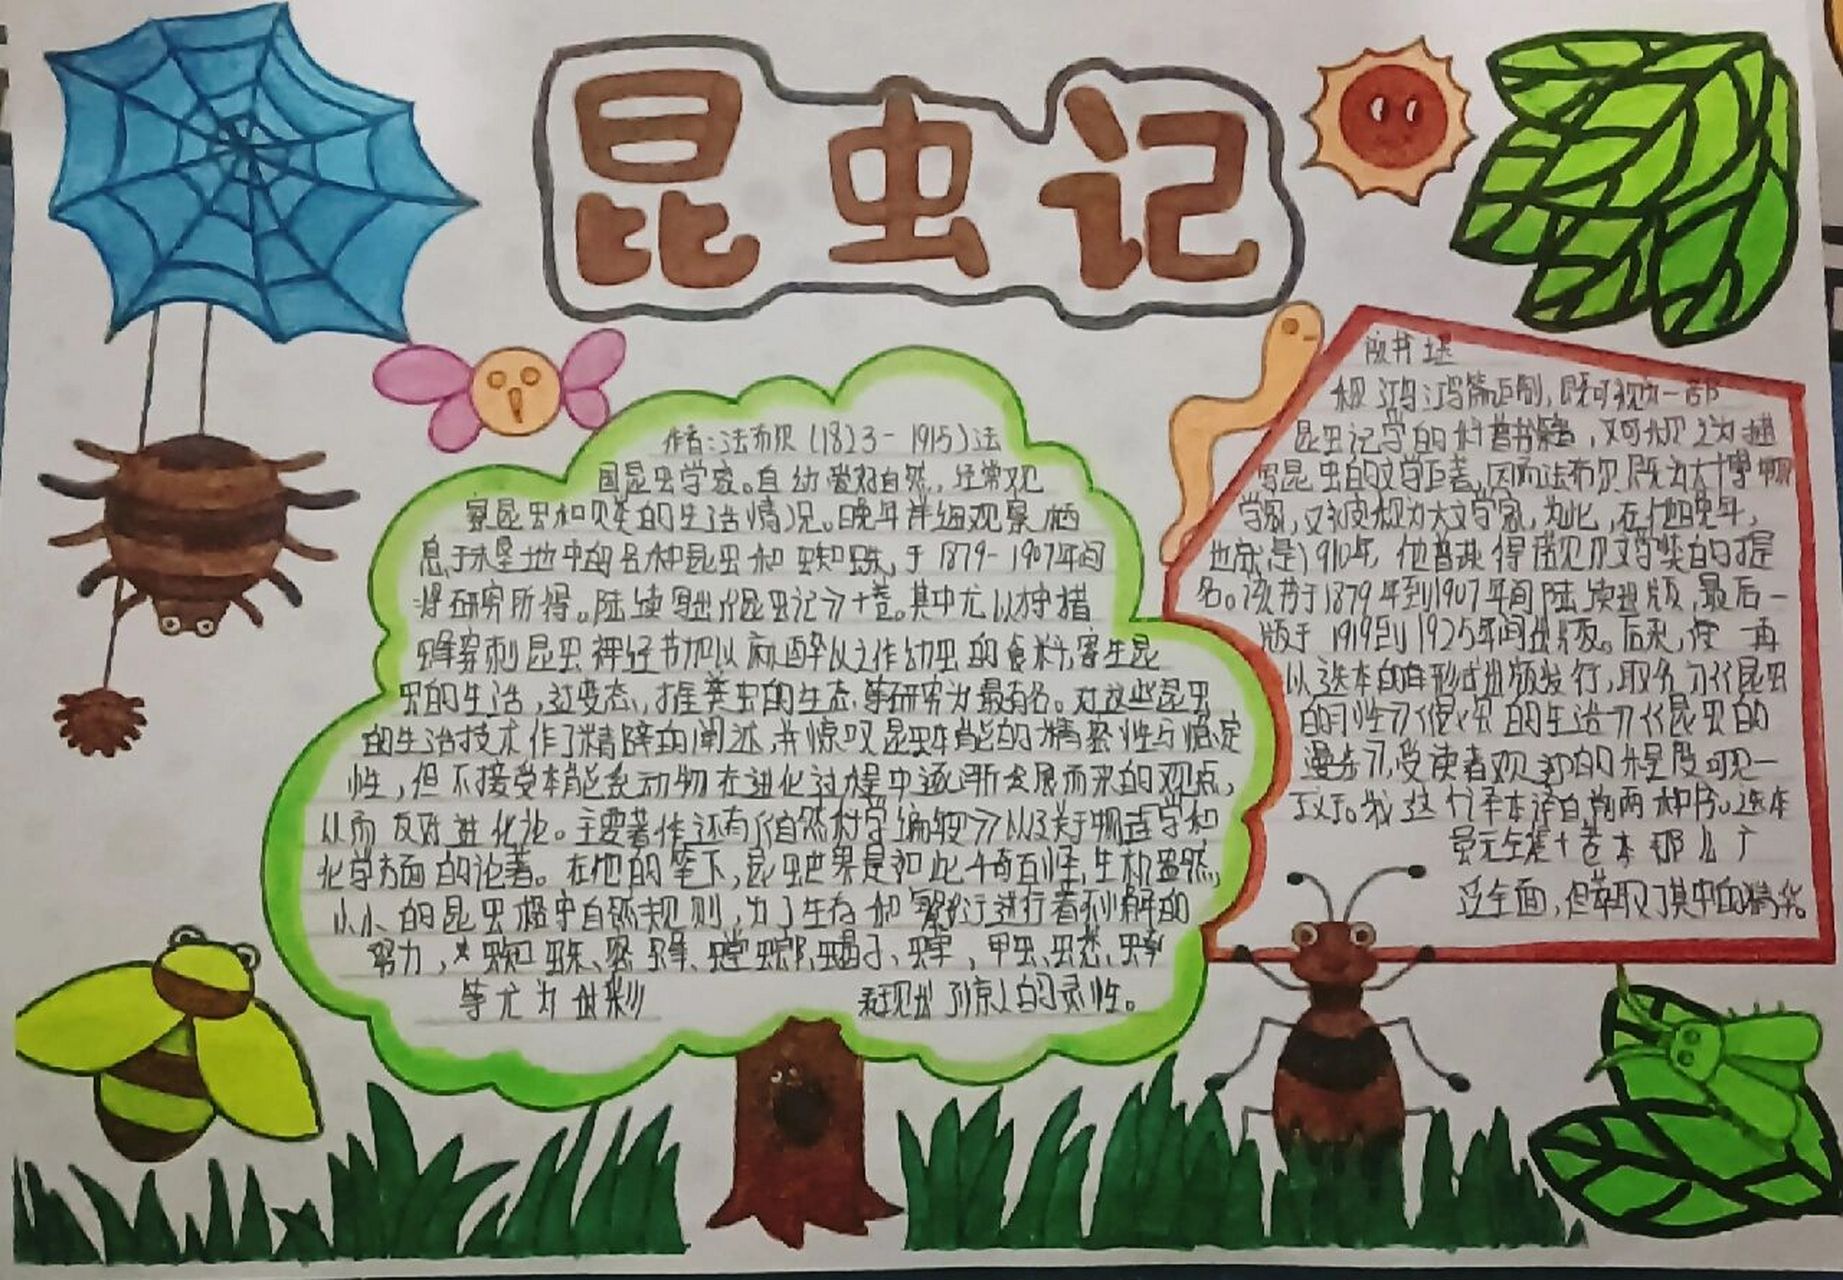 昆虫记
作者:法布尔(1823-1915)法
国昆虫学家。自幼爱好自然,经常观
察昆虫和的生活情况。晚年详细观察栖
息于地中的各种昆虫和蜘蛛,于1879-1907年间
将研究所得。陆续写出《昆虫记》十卷。其中尤以狩猎
蜂穿刺昆虫神经节加以麻醉以之作幼虫的食料,寄生昆
虫的生活,过变态,推粪虫的生态,等研究为最有名。对这些昆虫
的生活技术作了精辟的阐述,并惊叹昆虫本能的精密性与恒定
性,但不接受本能系动物在进化过程中逐渐发展而来的观点,
从而反对进化论。主要著作还有《自然科学编年史》以及关于物理学和
化学方面的论著。在他的笔下,昆虫世界是如此千奇百怪,生机盎然,
小小的昆虫恪守自然规则,为了生存和繁衍进行着不懈的
努力,蜘蛛、蜜蜂、螳螂、蝎子、蝉,甲虫、蟋蟀
等尤为出彩 表现出了惊人的灵性。
鸿鸿篇巨制,既可视为一部
昆虫记学的科普书籍,又可视之为描
写昆虫的文学巨著,因而法布尔既为大博物
学家,又被视为大文学家,为此,在他晚年,
也就是1910年,他曾获得诺贝尔文学奖的提
名。该书于1879年到1907年间陆续出版,最后一
版于1919到1925年间出版。后来,便一再
以选本的形式出版发行,取名为《昆虫
的习性》《昆虫的生活》《昆虫的
漫步》,受读者欢迎的程度可见一
我这个译本译自前两种书。选本
虽无全集十卷本那么广
泛全面,但萃取了其中的精华。